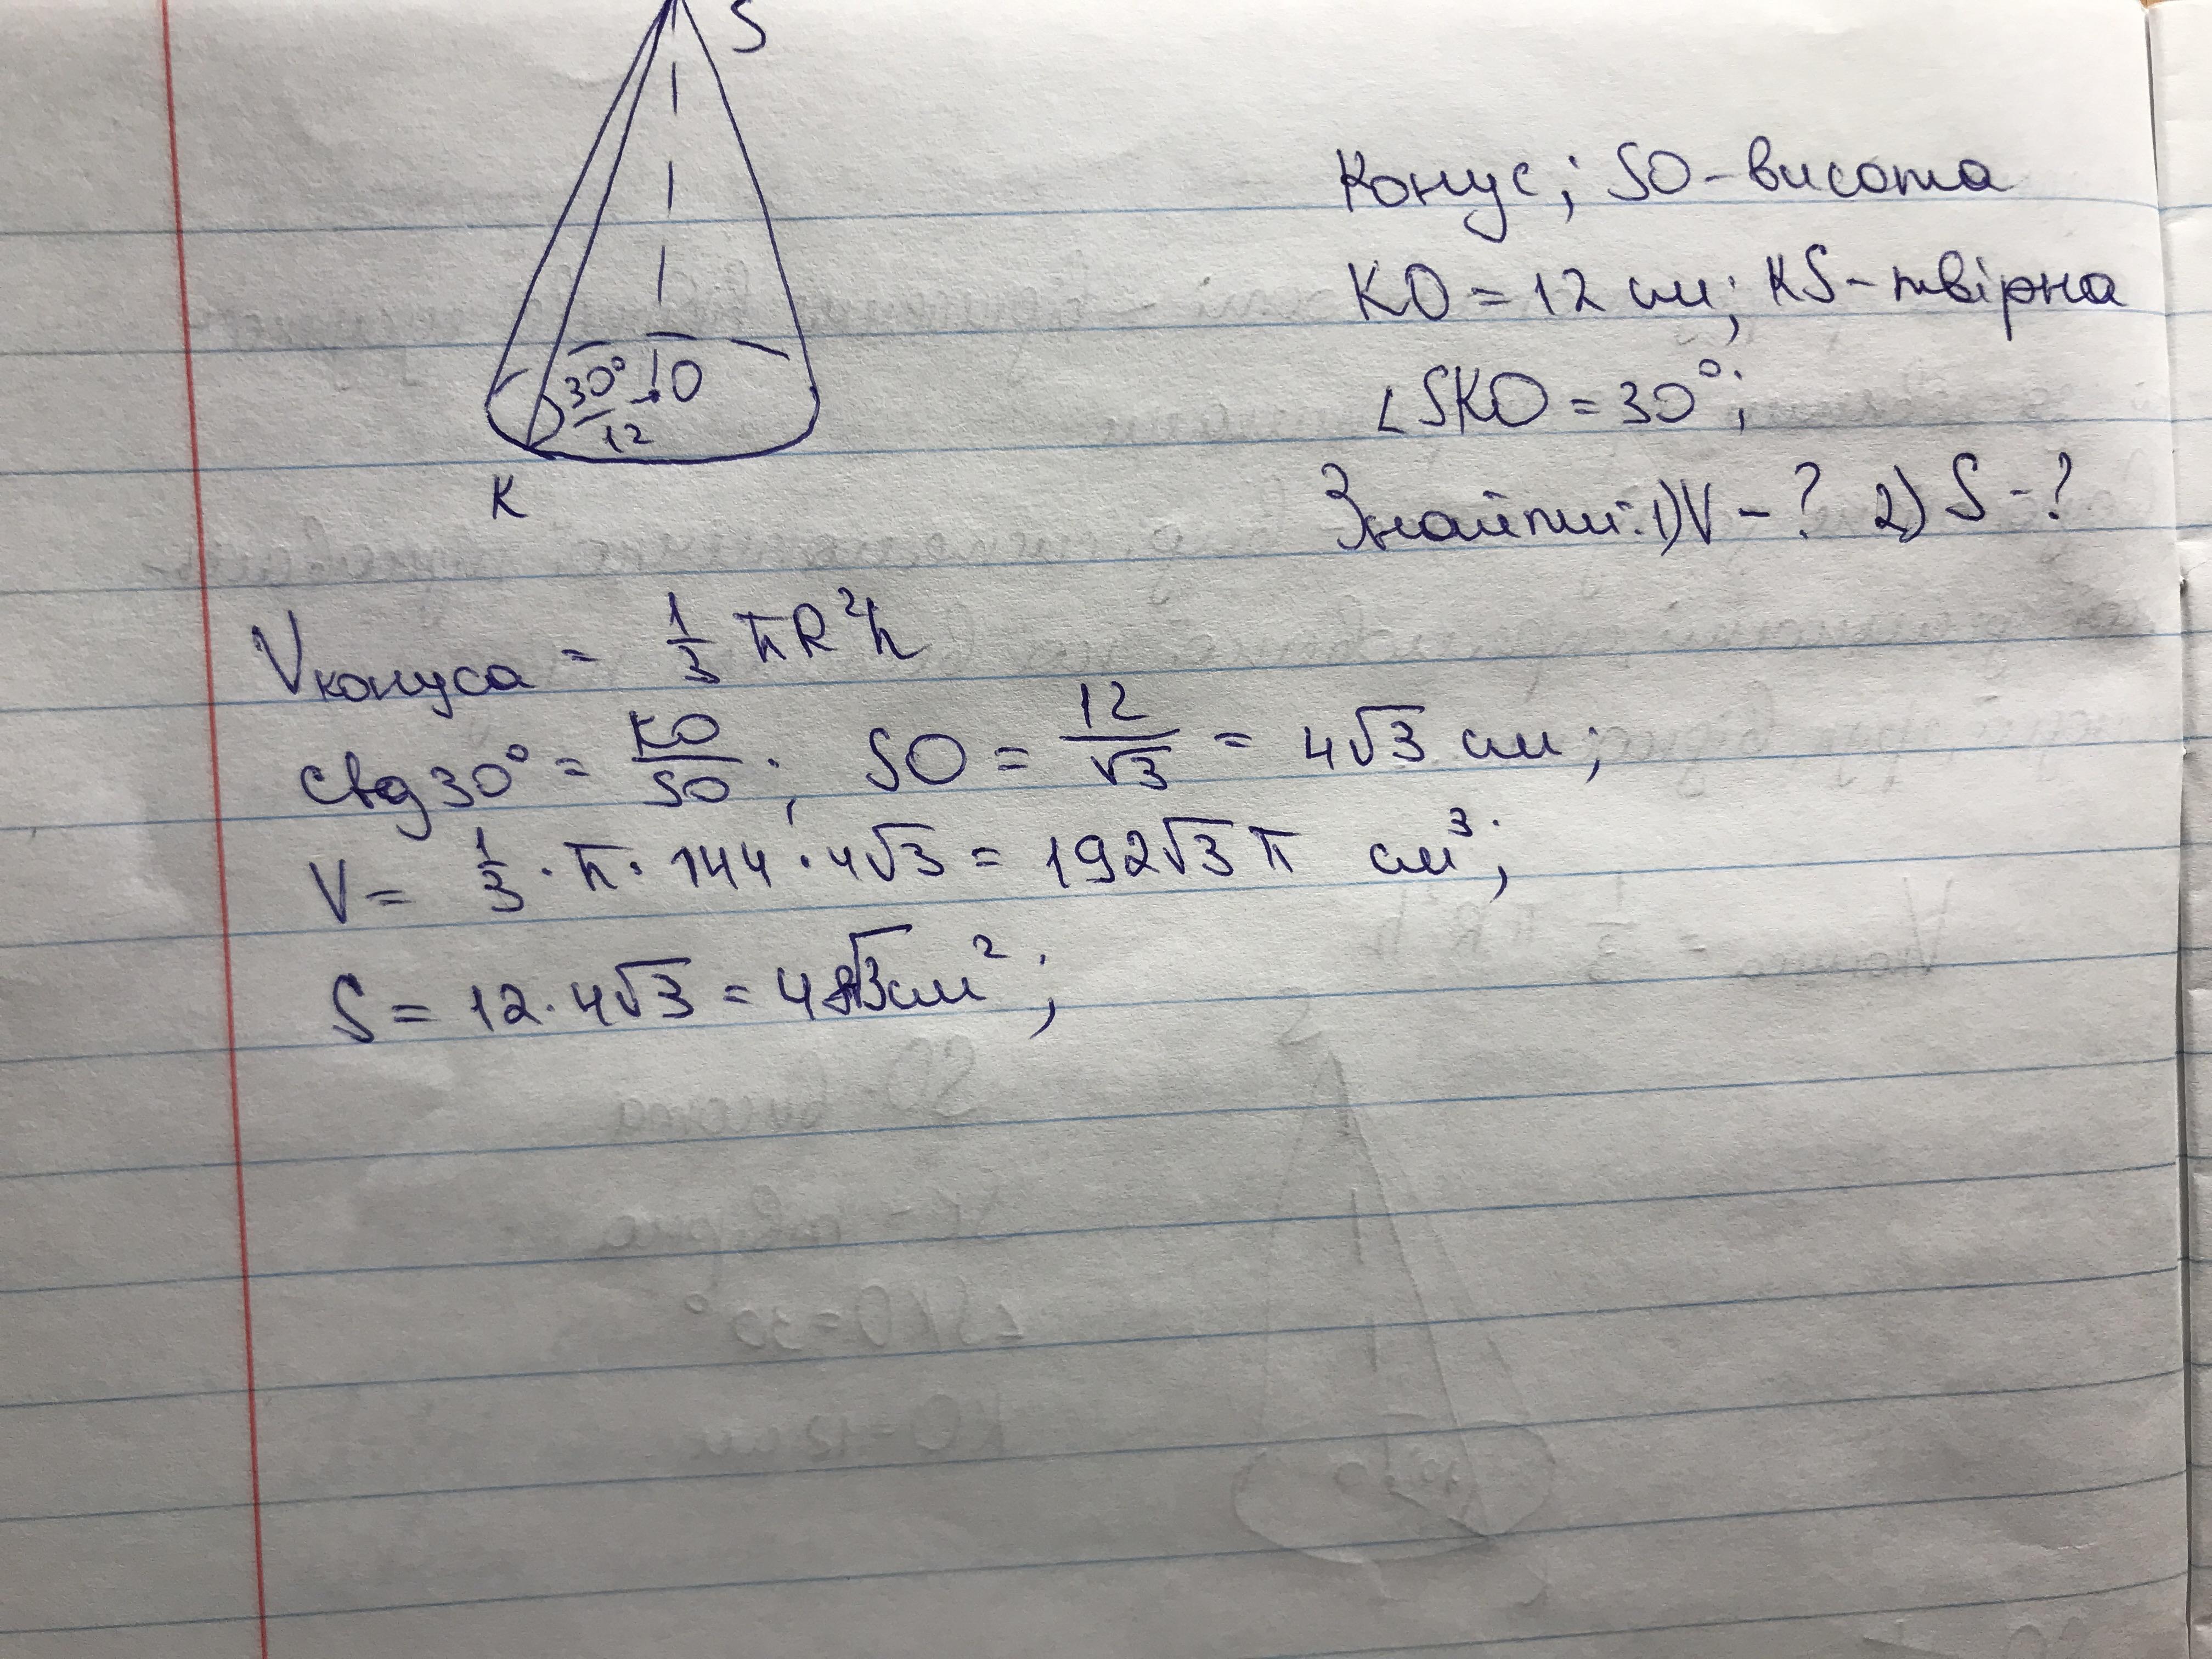 S
30° O
12
K
Конус; SO - висота
KO = 12 см; KS - твірна
∠SKO = 30°;
Знайти: 1) V - ? 2) S - ?
Vконуса = 1/3 πR²h
ctg 30° = KO/SO; SO = 12/√3 = 4√3 см;
V = 1/3 · π · 144 · 4√3 = 192√3 π см³;
S = 12 · 4√3 = 48√3 см²;